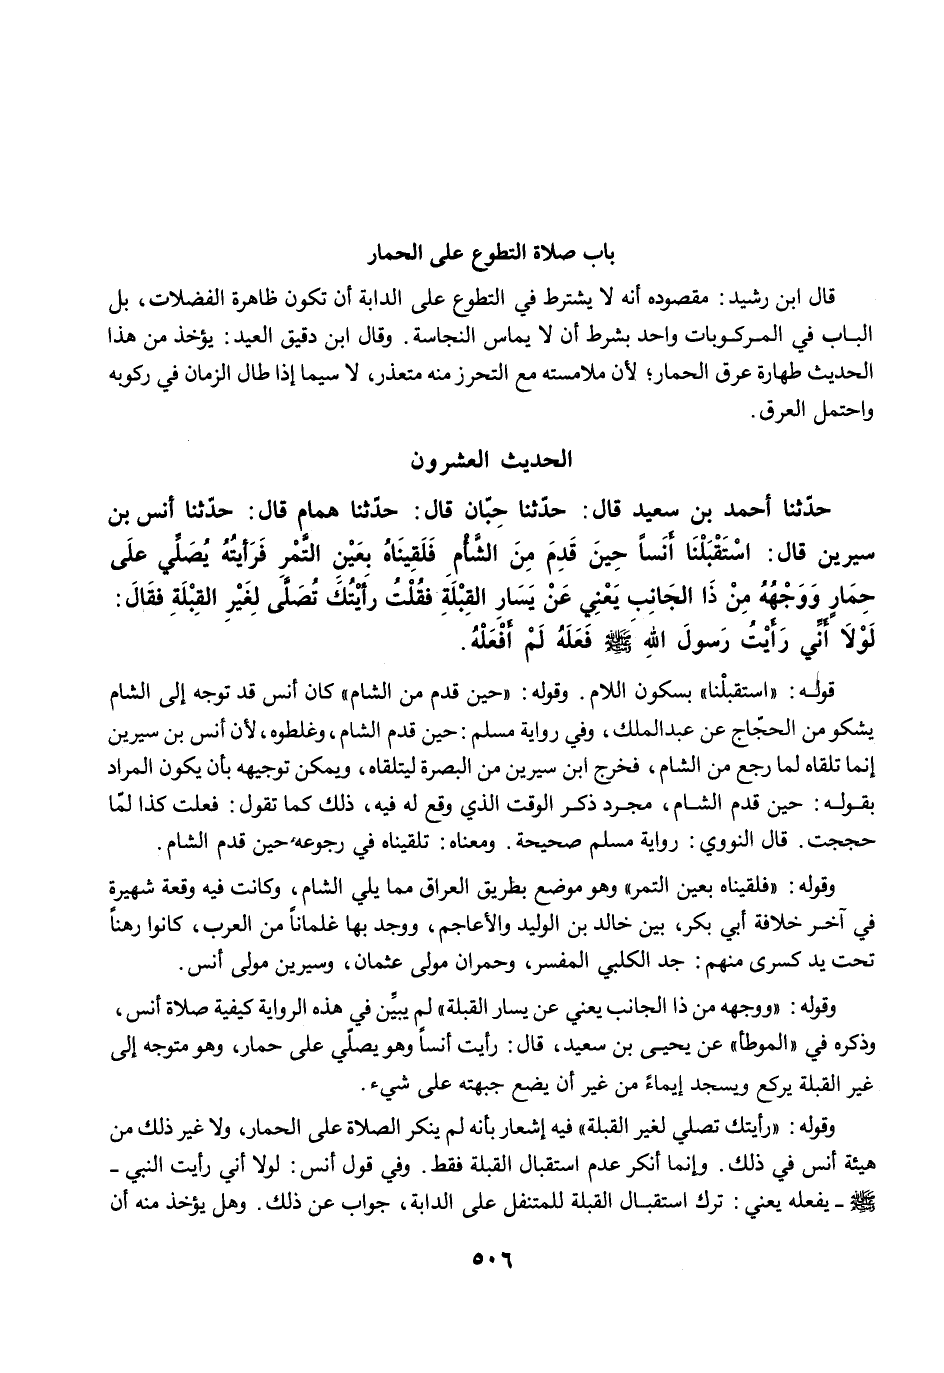 باب صلاة التطوع على الحمار
قال ابن رشيد: مقصوده أنه لا يشترط في التطوع على الدابة أن تكون ظاهرة الفضلات، بل
الباب في المركوبات واحد بشرط أن لا يماس النجاسة. وقال ابن دقيق العيد: يؤخذ من هذا
الحديث طهارة عرق الحمار؛ لأن ملامسته مع التحرز منه متعذر، لا سيما إذا طال الزمان في ركوبه
واحتمل العرق.
الحديث العشرون
حدّثنا أحمد بن سعيد قال: حدّثنا حِبّان قال: حدّثنا همام قال: حدّثنا أنس بن
سيرين قال: اسْتَقْبَلْنَا أَنَساً حِينَ قَدِمَ مِنَ الشَّأْمِ فَلَقِينَاهُ بِعَيْنِ التَّمْرِ فَرَأيتُهُ يُصَلِّي علَى
حِمَارٍ وَوَجْهُهُ مِنْ ذَا الجَانِبِ يَعْنِي عَنْ يَسَارِ القِبْلَةِ فقُلْتُ رأيْتُكَ تُصَلَّى لِغَيْرِ القِبْلَةِ فقَالَ:
لَوْلَا أَنِّي رَأَيْتُ رَسولَ اللهِ ﷺ فَعَلَهُ لَمْ أفْعَلْهُ.
قولُه: «استقبلْنا» بسكون اللام. وقوله: «حين قدم من الشام» كان أنس قد توجه إلى الشام
يشكو من الحجّاج عن عبدالملك، وفي رواية مسلم: حين قدم الشام، وغلطوه، لأن أنس بن سيرين
إنما تلقاه لما رجع من الشام، فخرج ابن سيرين من البصرة ليتلقاه، ويمكن توجيهه بأن يكون المراد
بقوله: حين قدم الشام، مجرد ذكر الوقت الذي وقع له فيه، ذلك كما تقول: فعلت كذا لمّا
حججت. قال النووي: رواية مسلم صحيحة. ومعناه: تلقيناه في رجوعه حين قدم الشام.
وقوله: «فلقيناه بعين التمر» وهو موضع بطريق العراق مما يلي الشام، وكانت فيه وقعة شهيرة
في آخر خلافة أبي بكر، بين خالد بن الوليد والأعاجم، ووجد بها غلماناً من العرب، كانوا رهناً
تحت يد كسرى منهم: جد الكلبي المفسر، وحمران مولى عثمان، وسيرين مولى أنس.
وقوله: «ووجهه من ذا الجانب يعني عن يسار القبلة» لم يبيِّن في هذه الرواية كيفية صلاة أنس،
وذكره في «الموطأ» عن يحيى بن سعيد، قال: رأيت أنساً وهو يصلّي على حمار، وهو متوجه إلى
غير القبلة يركع ويسجد إيماءً من غير أن يضع جبهته على شيء.
وقوله: «رأيتك تصلي لغير القبلة» فيه إشعار بأنه لم ينكر الصلاة على الحمار، ولا غير ذلك من
هيئة أنس في ذلك. وإنما أنكر عدم استقبال القبلة فقط. وفي قول أنس: لولا أني رأيت النبي -
ﷺ - يفعله يعني: ترك استقبال القبلة للمتنفل على الدابة، جواب عن ذلك. وهل يؤخذ منه أن
٥٠٦